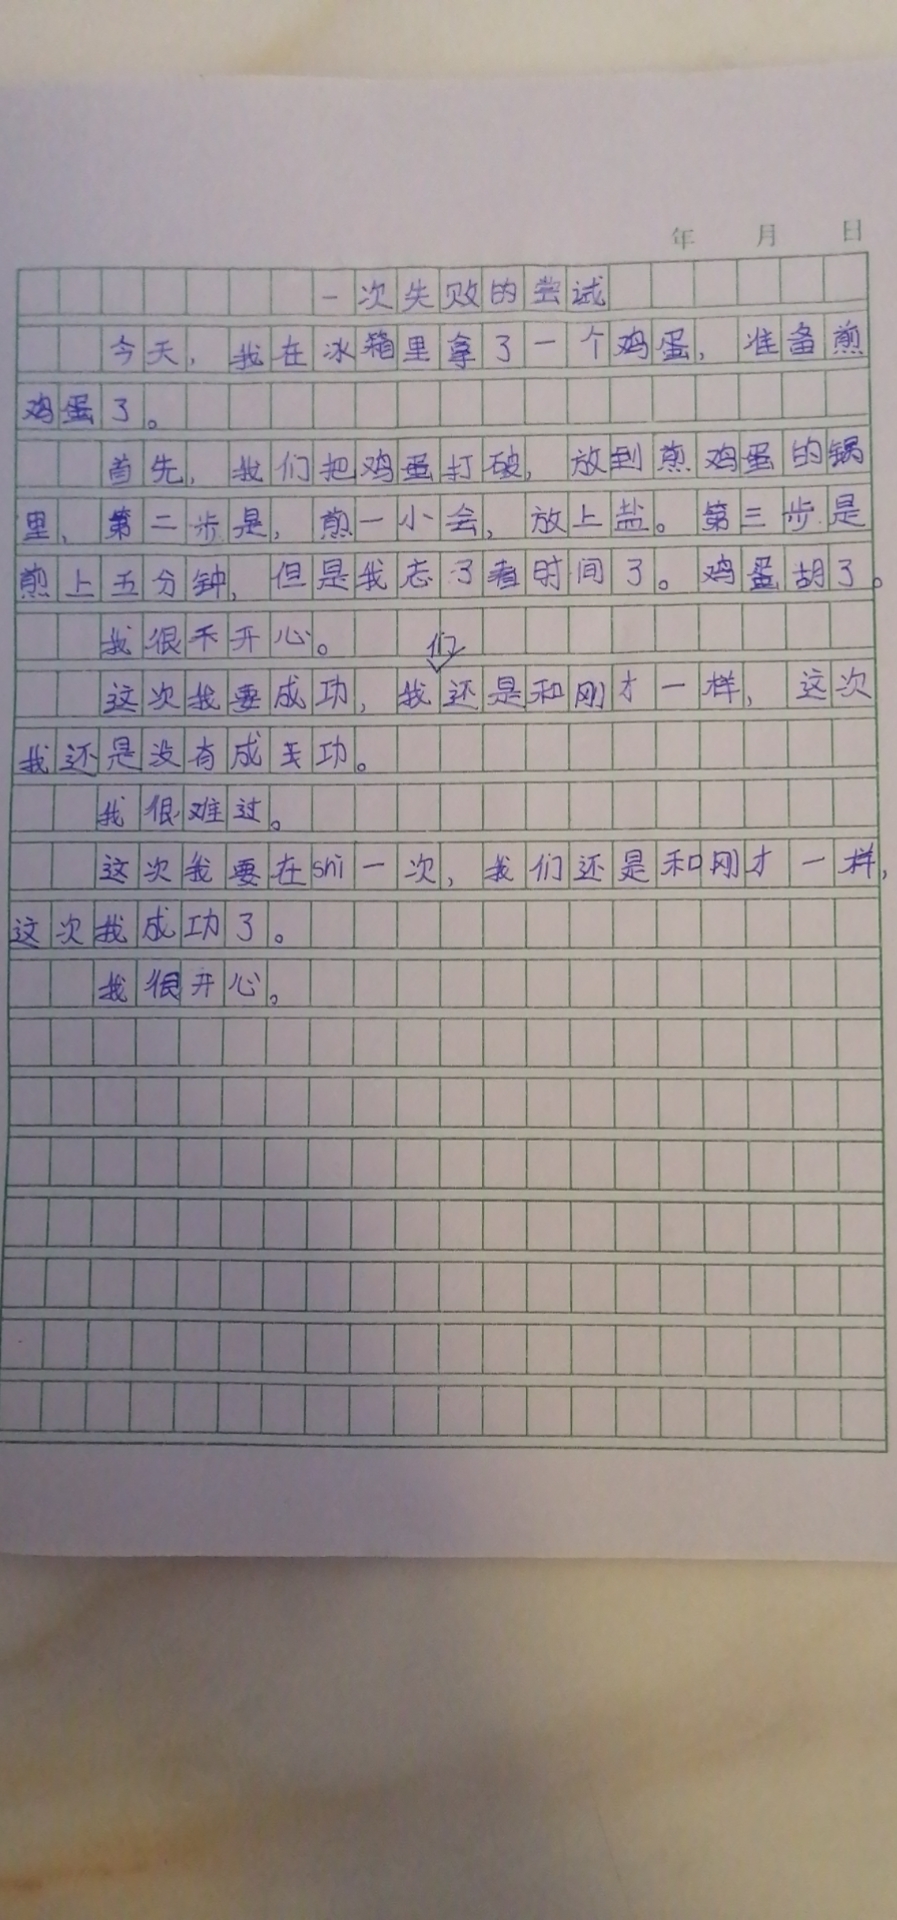 年 月 日
一次失败的尝试
今天，我在冰箱里拿了一个鸡蛋，准备煎
鸡蛋了。
首先，我们把鸡蛋打破，放到煎鸡蛋的锅
里，第二步是，煎一小会，放上盐。第三步是
煎上五分钟，但是我忘了看时间了。鸡蛋胡了。
我很不开心。
这次我要成功，我们还是和刚才一样，这次
我还是没有成功。
我很难过。
这次我要在shì一次，我们还是和刚才一样，
这次我成功了。
我很开心。